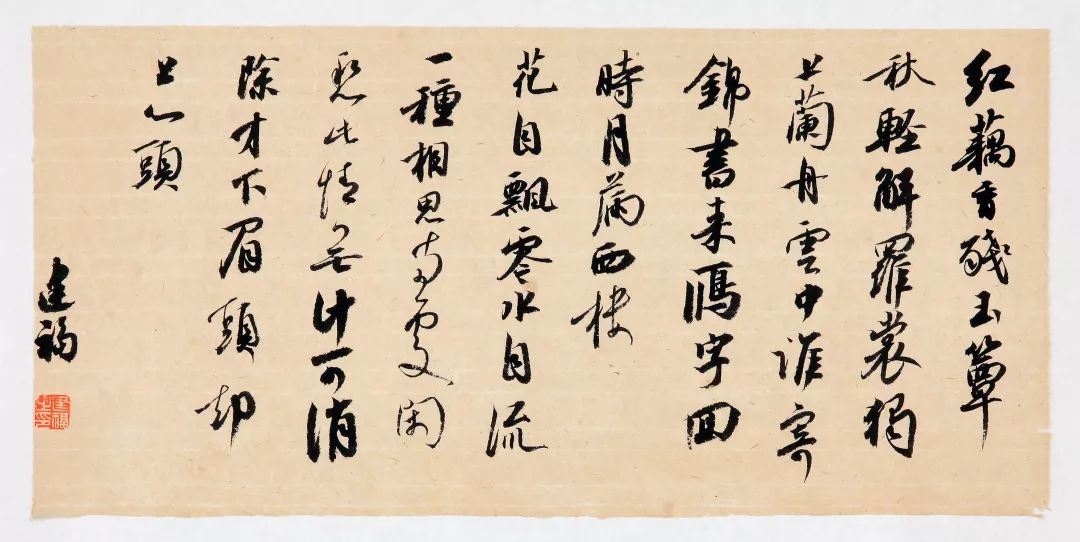 红藕香殘玉簟
秋輕解羅裳獨
上蘭舟雲中誰寄
錦書来鴈字回
時月滿西楼
花自飄零水自流
一種相思兩處閑
愁此情無計可消
除才下眉頭却
上心頭
建福